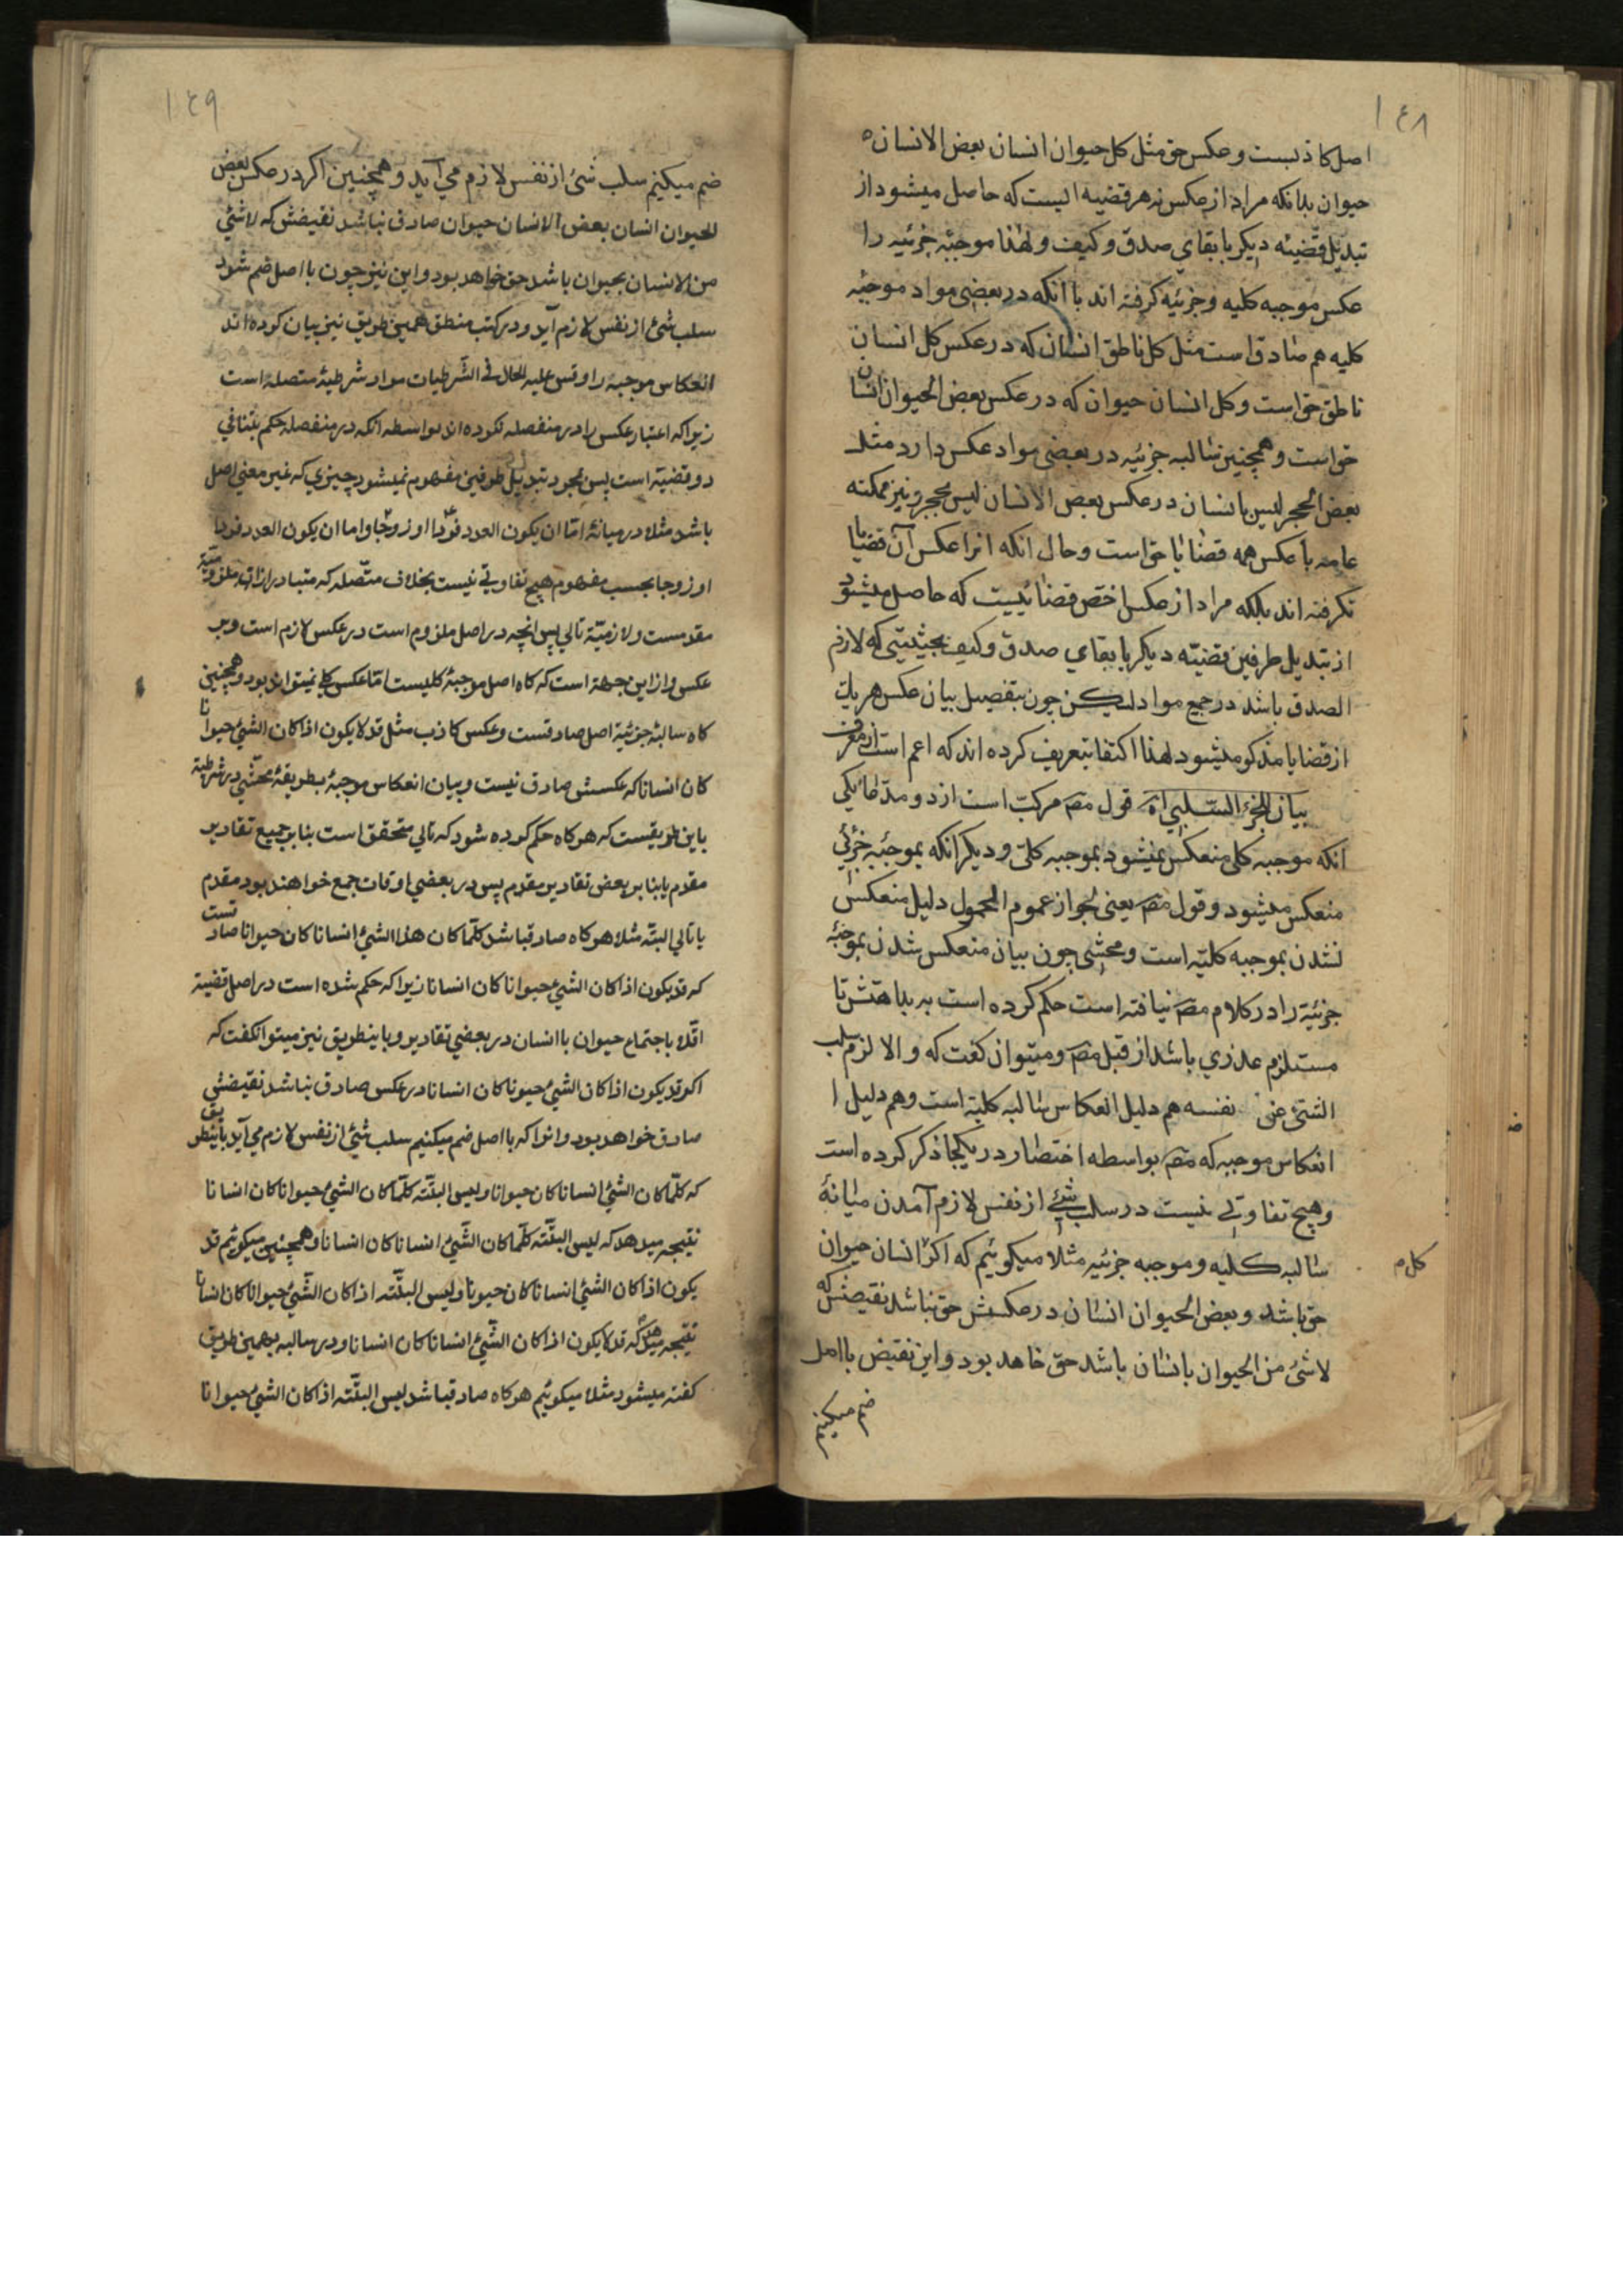 ۱۴۸
اصل کاذبست و عکس حق مثل کل حیوان انسان بعض الانسان
حیوان بدانکه مراد از عکس نه هر قضیه ایست که حاصل میشود از
تبدیل قضیه دیکر با بقای صدق و کیف و لهذا موجبه جزئیه را
عکس موجبه کلیه و جزئیه کرفته اند با آنکه در بعضی مواد موجبه
کلیه هم صادق است مثل کل ناطق انسان که در عکس کل انسان
ناطق حق است و کل انسان حیوان که در عکس بعض الحیوان انسان
حق است و همچنین سالبه جزئیه در بعضی مواد عکس دارد مثل
بعض الحجر لیس بانسان در عکس بعض الانسان لیس بحجر و نیز ممکنه
عامه با عکس همه قضایا حق است و حال انکه انرا عکس آن قضایا
نکرفته اند بلکه مراد از عکس اخص قضائیست که حاصل میشود
از تبدیل طرفین قضیه دیکر با بقای صدق و کیف بحیثیتی که لازم
الصدق باشد در جمیع مواد لیکن چون بتفصیل بیان عکس هر یک
از قضایا مذکور میشود لهذا اکتفا بتعریف کرده اند که اعم است از معرف
بیان للجزء السلبی اه قول مص مرکب است از دو مدعا یکی
انکه موجبه کلی منعکس نمیشود بموجبه کلی و دیکر انکه بموجبه جزئی
منعکس میشود و قول مص یعنی لجواز عموم المحمول دلیل منعکس
نشدن بموجبه کلیه است و محشی چون بیان منعکس شدن بموجبه
جزئیه را در کلام مص نیافته است حکم کرده است به بداهتش تا
مستلزم عذری باشد از قبل مص و میتوان کفت که و الا لزم سلب
الشئ عن نفسه هم دلیل انعکاس سالبه کلیه است و هم دلیل ا
انعکاس موجبه که مص بواسطه اختصار در یکجا ذکر کرده است
و هیچ تفاوتی نیست در سلب شئ از نفس لازم آمدن میانهٔ
سالبه کلیه و موجبه جزئیه مثلا میکوئیم که اکر انسان حیوان
کل م
حق باشد و بعض الحیوان انسان در عکسش حق نباشد نقیضش که
لاشئ من الحیوان بانسان باشد حق خاهد بود و این نقیض با اصل
ضم میکنیم
۱۴۹
ضم میکنیم سلب شئ از نفس لازم می آید و همچنین اکر در عکس بعض
الحیوان انسان بعض الانسان حیوان صادق نباشد نقیضش که لاشئ
من الانسان بحیوان باشد حق خواهد بود و این نیز چون با اصل ضم شود
سلب شئ از نفس لازم آید و در کتب منطق همین طریق نیز بیان کرده اند
انعکاس موجبه را و قس علیه الحال فی الشرطیات مراد شرطیهٔ متصله است
زیرا که اعتبار عکس را در منفصله نکرده اند بواسطه انکه در منفصله حکم بتنافی
دو قضیه است پس بمجرد تبدیل طرفین مفهوم نمیشود چیزی که غیر معنی اصل
باشد مثلا در میانهٔ اما ان یکون العدد فردا او زوجا و اما ان یکون العدد فردا
او زوجا بحسب مفهوم هیچ تفاوتی نیست بخلاف متصله که متبادر از ان ملزومیة
مقدمست و لازمیة تالی پس انچه در اصل ملزوم است در عکس لازم است و ب
عکس و از این جهة است که کاه اصل موجبهٔ کلیست اما عکس کلی نمیتواند بود و همچنین
کاه سالبهٔ جزئیهٔ اصل صادقست و عکس کاذب مثل قد لا یکون اذا کان الشئ حیوانا
کان انسانا که عکسش صادق نیست و بیان انعکاس موجبهٔ بطریقهٔ محشی در شرطیة
باین طریقست که هرکاه حکم کرده شود که تالی متحقق است بنا بر جمیع تقادیر
مقدم یا بنا بر بعض تقادیر مقدم پس در بعضی اوقات جمع خواهند بود مقدم
یا تالی البته مثلا هرکاه صادق باشد کلما کان هذا الشئ انسانا کان حیوانا صادقست
که قد یکون اذا کان الشئ حیوانا کان انسانا زیرا که حکم شده است در اصل قضیة
اقلا باجتماع حیوان با انسان در بعضی تقادیر و باینطریق نیز میتوان کفت که
اکر قد یکون اذا کان الشئ حیونا کان انسانا در عکس صادق نباشد نقیضش
صادق خواهد بود و انرا که با اصل ضم میکنیم سلب شئ از نفس لازم می آید باینطریق
که کلما کان الشئ انسانا کان حیوانا و لیس البتة کلما کان الشئ حیوانا کان انسانا
نتیجه میدهد که لیس البتة کلما کان الشئ انسانا کان انسانا و همچنین میکوئیم قد
یکون اذا کان الشئ انسانا کان حیونا و لیس البتة اذا کان الشئ حیوانا کان انسانا
نتیجه میدهد که قد لا یکون اذا کان الشئ انسانا کان انسانا و در سالبه بهمین طریق
کفته میشود مثلا میکوئیم هرکاه صادق باشد لیس البتة اذا کان الشئ حیوانا